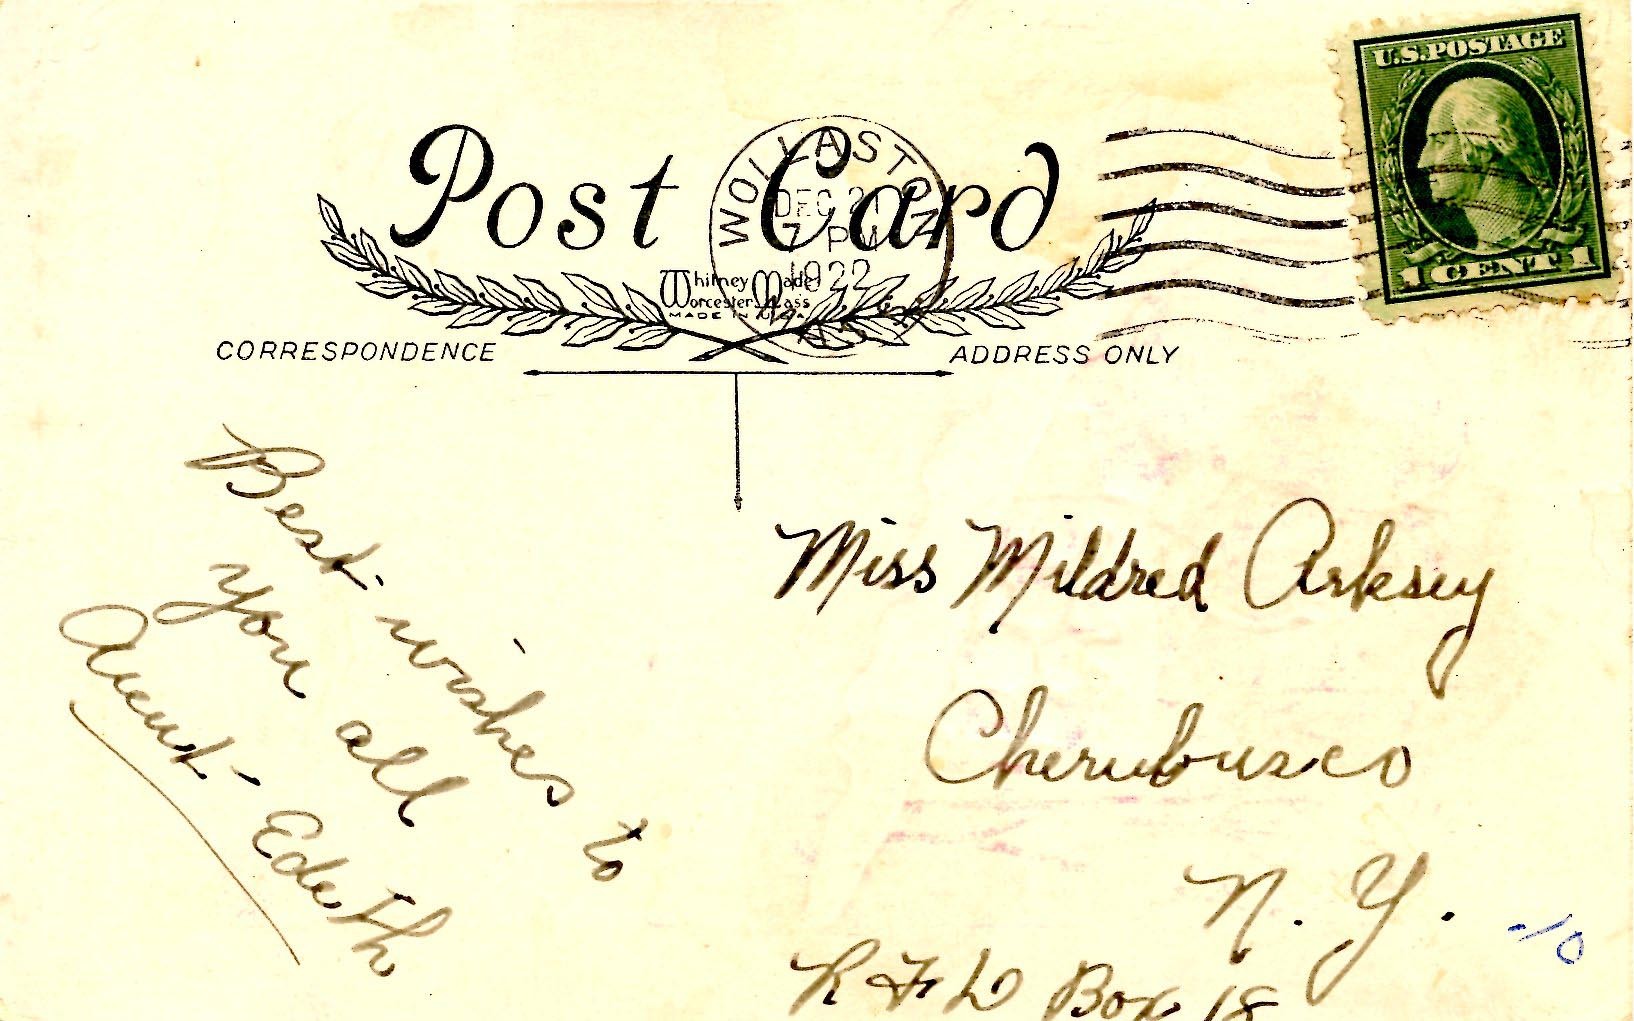 U.S. POSTAGE
1 CENT 1
Post Card
WOLLASTON
DEC 21
7 PM
1922
MASS
Whitney Made
Worcester Mass
MADE IN U.S.A.
CORRESPONDENCE
ADDRESS ONLY
Best wishes to
you all
Aunt Edith
Miss Mildred Arksey
Churubusco
N. Y.
R F D Box 18
.10